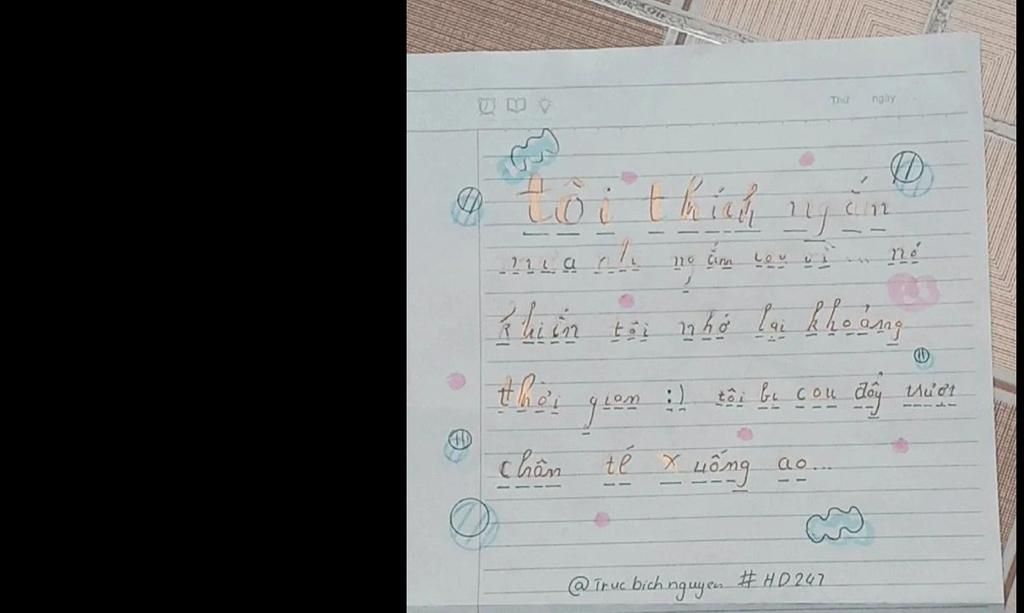 Thứ ngày
tôi thích ngắn
vì ... nó
khiến tôi nhớ lại khoảng
thời gian :) tôi bị cou đẩy trượt
chân té xuống ao...
@Trucbichnguyen #HD247